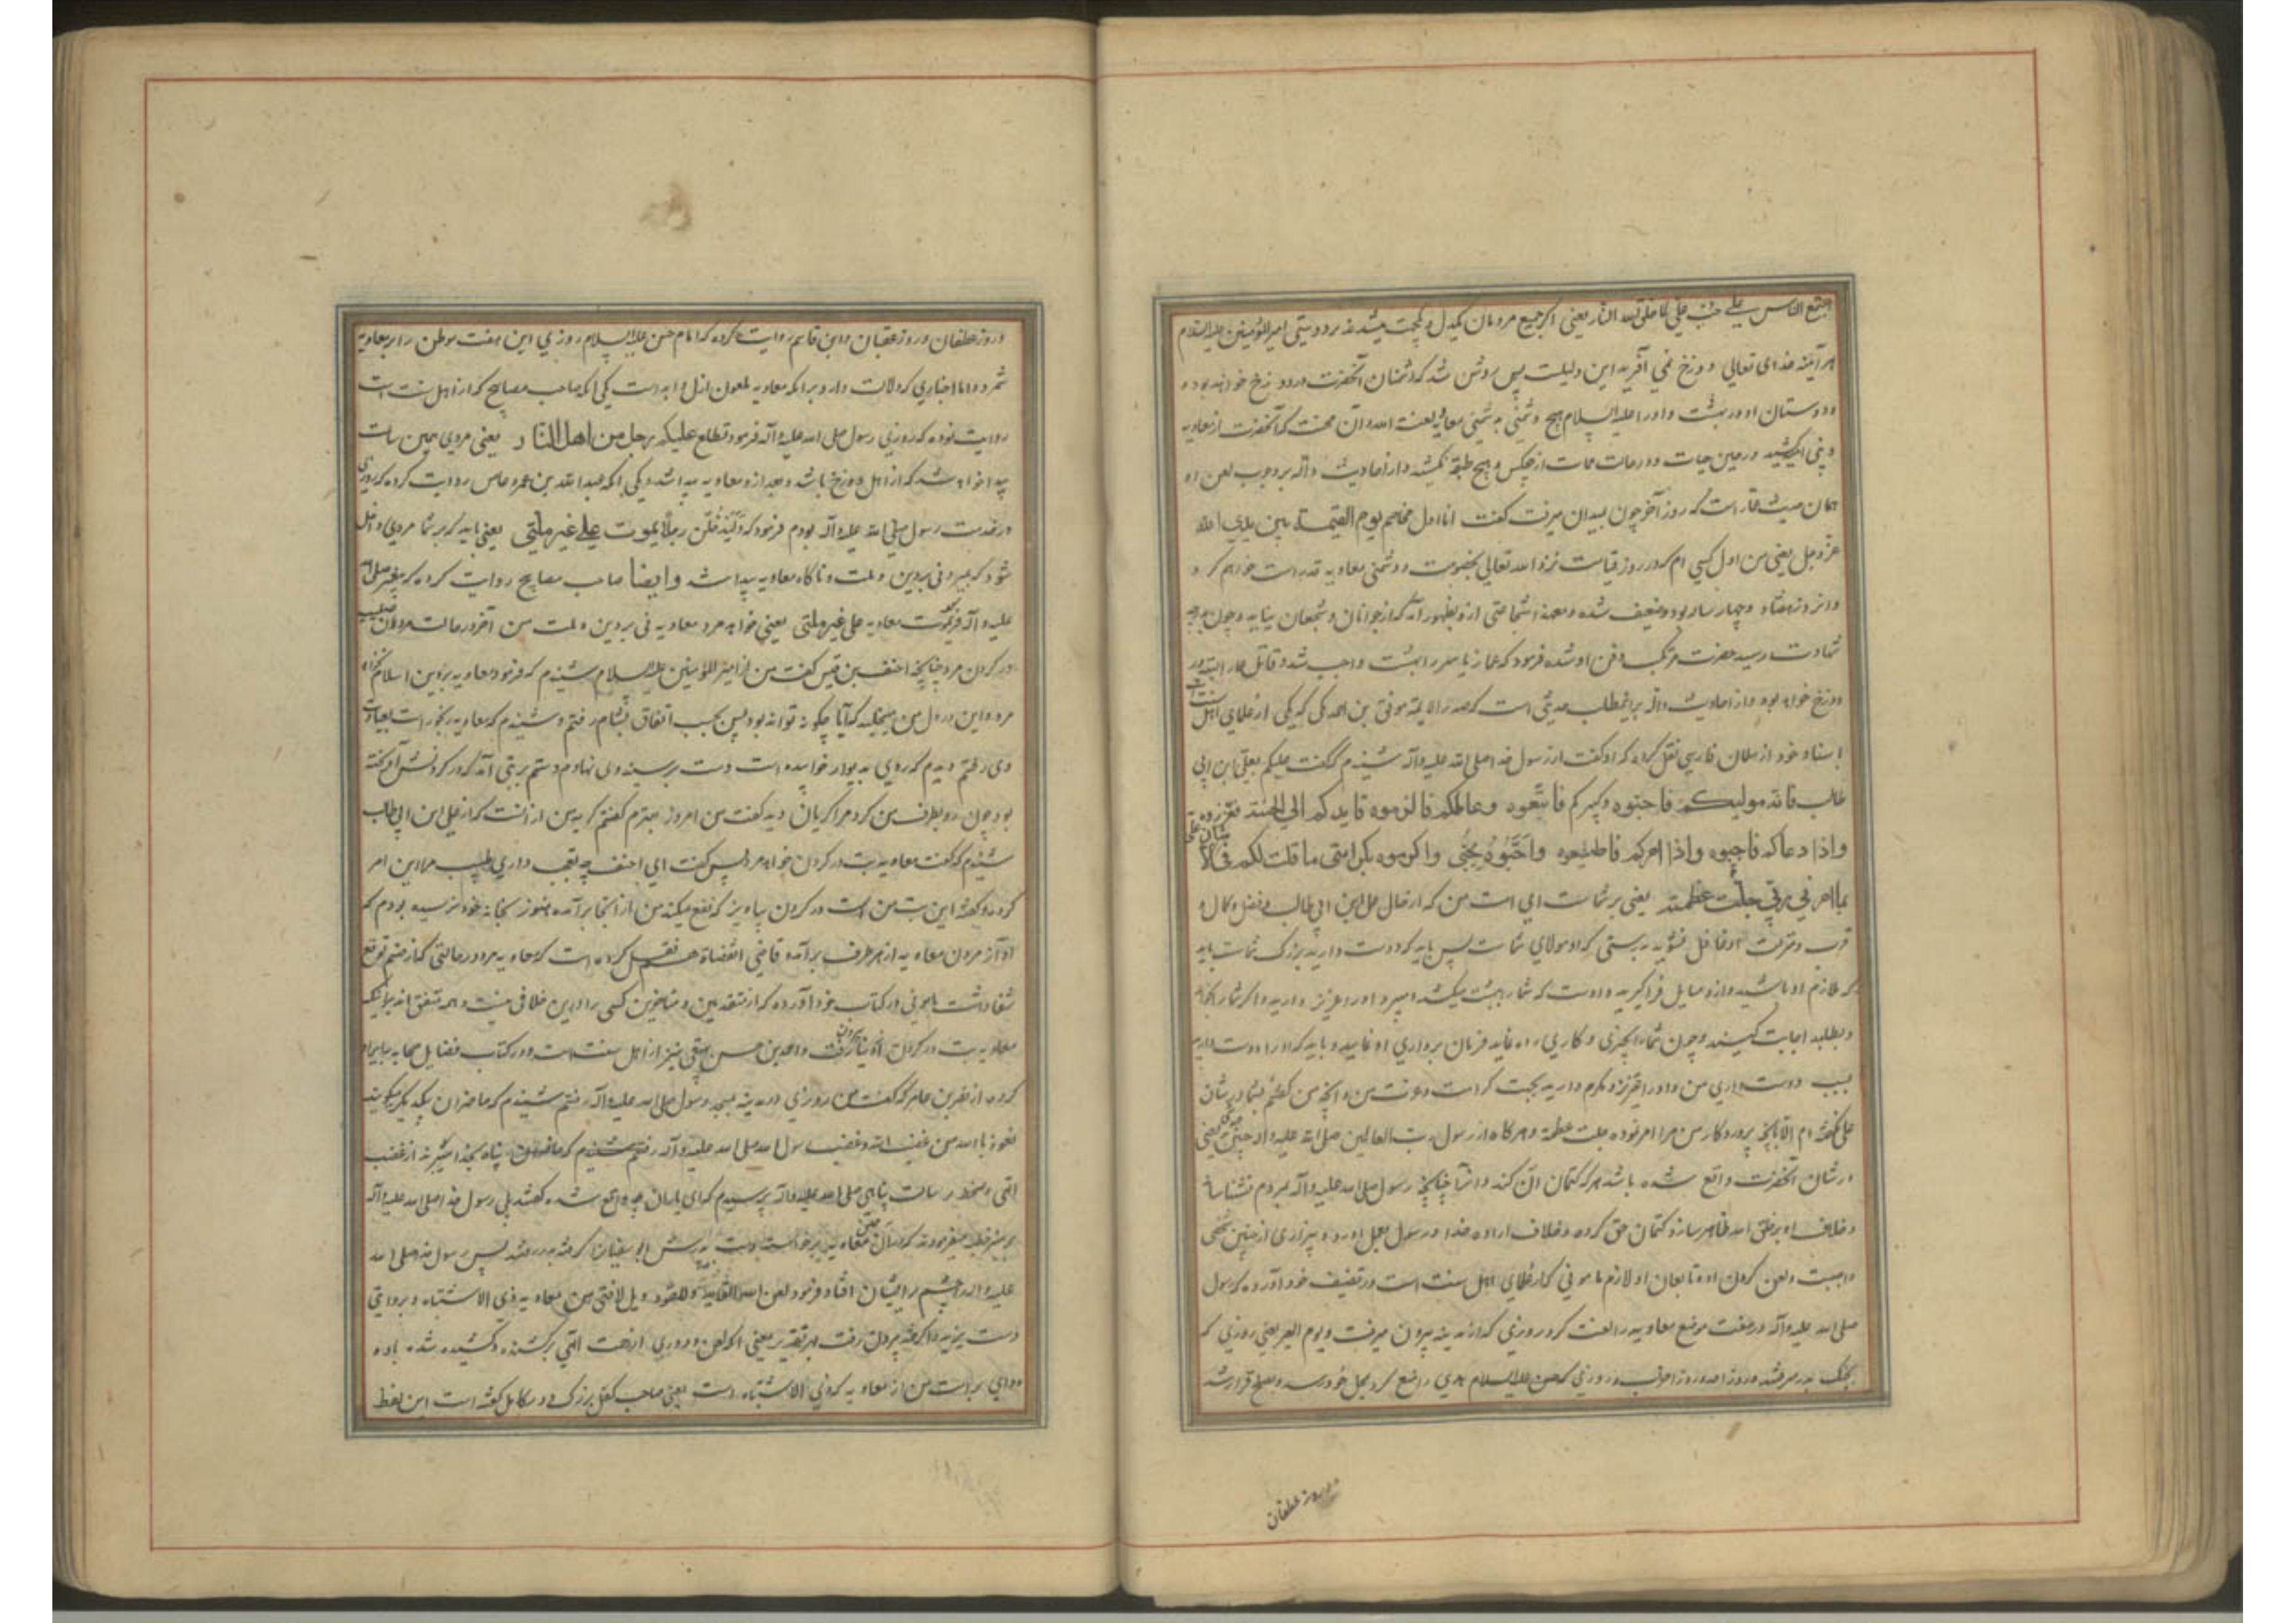 اجتمع الناس علی حب علی لما خلق الله النار یعنی اگر جمیع مردمان یکدل و یکجهت میشدند بر دوستی امیرالمؤمنین علیه السلام
هر آینه خدای تعالی دوزخ نمی آفرید این دلیلست پس روشن شد که دشمنان آنحضرت در دوزخ خواهند بود و
دوستان او در بهشت و او را علیه السلام هیچ دشمنی به دشمنی معاویه لعنة الله و آن محنت که آنحضرت از معاویه
در حین حیات و در حالت ممات از هیچکس و هیچ طبقه نکشید و از احادیث داله بر وجوب لعن او
همان حدیث است که روز آخر چون بمیدان میرفت گفت انا اول مخاصم یوم القیمة بین یدی الله
عز و جل یعنی من اول کسی ام که در روز قیامت نزد الله تعالی بخصومت و دشمنی معاویه خواهم کرد
نود و چهار ساله بود و ضعیف شده و معهذا شجاعتی از او بظهور آمد که از جوانان و شجعان نیاید و چون بدرجه
شهادت رسید حضرت مرتکب دفن او شده فرمود که عمار یاسر را بهشت واجب شد و قاتل عمار البته در
دوزخ خواهد بود و از احادیث داله بر اینمطلب حدیثی است که صدر الائمه موفق بن احمد مکی که یکی از علمای اهل سنت است
باسناد خود از سلمان فارسی نقل کرده که او گفت از رسول خدا صلی الله علیه و آله شنیدم که گفت علیکم بعلی بن ابی
طالب فانه مولیکم فاحبوه و کبیرکم فاتبعوه و عالمکم فالزموه قایدکم الی الجنة فعزروه
و اذا دعاکم فاجیبوه و اذا امرکم فاطیعوه و احبوه بحبی و اکرموه بکرامتی ما قلت لکم فی شان علی الا
بما امرنی ربی جلت عظمته یعنی بر شماست ای امت من که از فضل علی بن ابی طالب و فضل و کمال و
قرب و منزلت او غافل نشوید بدرستی که او مولای شماست پس باید که دوست دارید بزرگ شماست باید
که ملازم او باشید و از او مسایل فراگیرید و اوست که شما را ببهشت میکشد او را عزیز دارید و اگر شما را بخواند
و بطلبد اجابت کنید و چون شما را بچیزی و کاری راه نماید فرمان برداری او نمایید و باید که او را دوست دارید
بسبب دوست داری من و او را عزیز و مکرم دارید بجهت کرامت و عزت من و آنچه من گفتم بشما در شان
علی نگفته ام الا بآنچه پروردگار من مرا امر فرموده جلت عظمته و هرگاه از رسول رب العالمین صلی الله علیه و آله چنین
در شان آنحضرت واقع شده باشد هر که کتمان آن کند و آنرا چنانچه رسول صلی الله علیه و آله بمردم نشناساند
و خلاف او بر خلق الله ظاهر سازد کتمان حق کرده و خلاف اراده خدا و رسول بعمل آورده و بیزاری از چنین شخصی
واجبست و لعن کردن او و تابعان او لازم مامونی که از علمای اهل سنت است در تصنیف خود آورده که رسول
صلی الله علیه و آله در هفت موضع معاویه را لعنت کرد روزی که از مدینه بیرون میرفت و یوم العیر یعنی روزی که
بجنگ بدر میرفتند و روز احد و روز احزاب و روزی که حسن علیه السلام
و روز غطفان
و روز غطفان و روز عقبان و ابن قاسم روایت کرده که امام حسن علیه السلام روزی این هفت موطن را بر معاویه
شمرد و اما اخباری که دلالت دارد بر آنکه معاویه ملعون ازل و ابد است یکی آنکه صاحب مصابیح که از اهل سنت است
روایت نموده که روزی رسول صلی الله علیه و آله فرمود تطلع علیکم رجل من اهل النار یعنی مردی همین ساعت
پیدا خواهد شد که از اهل دوزخ باشد و بعد از او معاویه پیدا شد و یکی آنکه عبدالله بن عمرو عاص روایت کرده که روزی
در خدمت رسول صلی الله علیه و آله بودم فرمود که رجلا یموت علی غیر ملتی یعنی باید که بر شما مردی داخل
شود که بمیرد نه بر دین و ملت من ناگاه معاویه پیدا شد و ایضا صاحب مصابیح روایت کرده که پیغمبر صلی الله
علیه و آله فرمود یموت معاویه علی غیر ملتی یعنی خواهد مرد معاویه نه بر دین و ملت من آخر در حالت مردن صلیب
در گردن مرد چنانچه احنف بن قیس گفت من از امیر المؤمنین علیه السلام شنیدم که فرمود معاویه بر دین اسلام نخواهد
مرد و این در دل من میخلید که آیا چگونه تواند بود پس بحسب اتفاق بشام رفتم و شنیدم که معاویه رنجور است بعیادت
وی رفتم دیدم که روی بدیوار خوابیده است دست بر سینه وی نهادم دستم بر بتی آمد که در گردنش آویخته
بود چون رو بطرف من کرد مرا گریان دید گفت من امروز بهترم گفتم گریه من از آنست که از علی ابن ابی طالب
شنیدم که گفت معاویه بت در گردن خواهد مرد پس گفت ای احنف چه تعجب داری طبیب مرا باین امر
کرده و گفته این بت من است در گردن بیاویز که نفع میکند من از آنجا برآمده هنوز بخانه خود نرسیده بودم که
آواز مردن معاویه از هر طرف برآمد قاضی القضاة هم نقل کرده است که معاویه مرد در حالتی که از صنم توقع
شفا داشت مامونی در کتاب خود آورده که از متقدمین و متاخرین کسی را در این خلافی نیست و همه متفق اند بر اینکه
معاویه بت در گردن از دنیا بیرون رفت و احمد بن حسن بیهقی نیز از اهل سنت است و در کتاب فضایل صحابه
کرده از نصر بن عاصم که گفت من روزی در مدینه بمسجد رسول صلی الله علیه و آله رفتم شنیدم که حاضران بیکدیگر میگویند
نعوذ بالله من غضب الله و غضب رسول الله صلی الله علیه و آله رفتم شنیدم که حاضران پناه بخدا میبرند از غضب
الهی و سخط رسالت پناهی صلی الله علیه و آله پرسیدم که ای یاران چه واقع شده گفتند بلی رسول خدا صلی الله علیه و آله
بر منبر خطبه میفرمودند که در آن معاویه برخاسته دست پدرش ابو سفیان را گرفته بدر رفتند پس رسول خدا صلی الله
علیه و آله را چشم بر ایشان افتاد فرمود لعن الله القاید و المقود ویل لامتی من معاویه ذی الاشتباه و بروایتی
دست یزید را گرفته بیرون رفت بهر تقدیر یعنی آنکه لعن و دوری از رحمت الهی بر کشنده و کشیده شده باد
و وای بر امت من از معاویه که ذی الاشتباه است یعنی صاحب کفل بزرگ و در کامل گفته است این لفظ